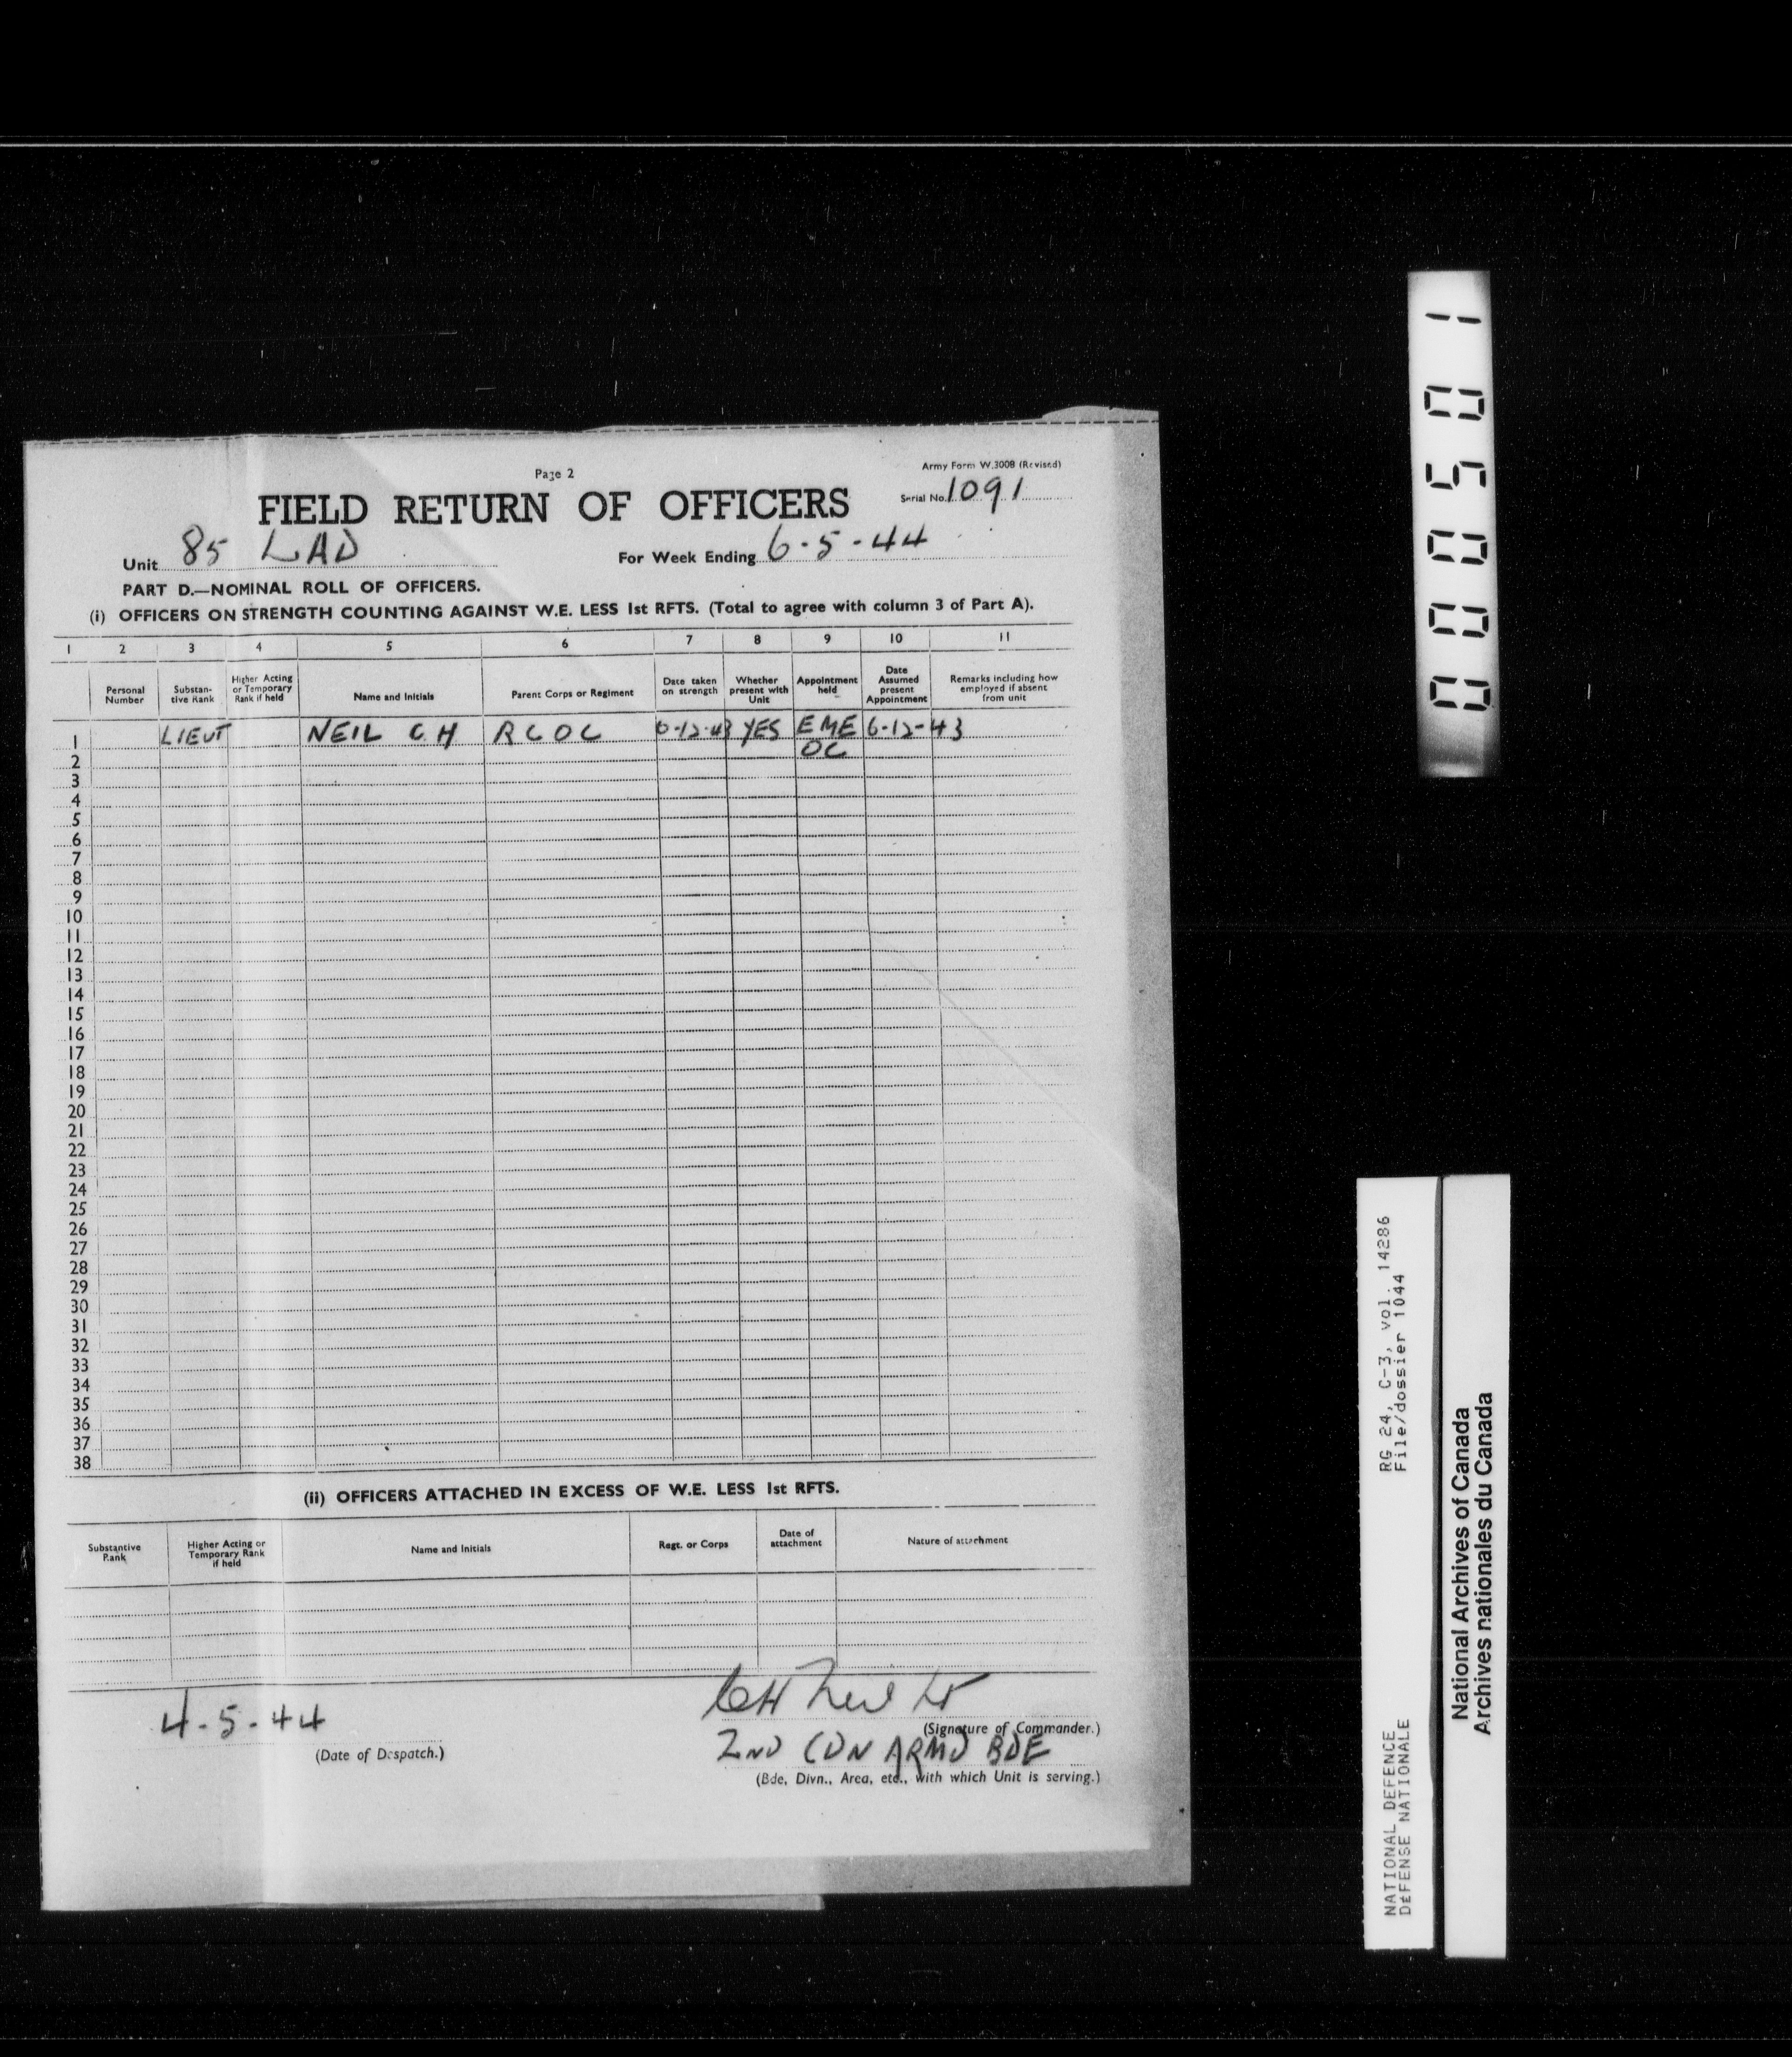 Page 2
Army Form W.3008 (Revised)
FIELD RETURN OF OFFICERS
Serial No. 1091
Unit 85 LAD
For Week Ending 6-5-44
PART D.—NOMINAL ROLL OF OFFICERS.
(i) OFFICERS ON STRENGTH COUNTING AGAINST W.E. LESS 1st RFTS. (Total to agree with column 3 of Part A).
1 2 3 4 5 6 7 8 9 10 11
Personal Number
Substantive Rank
Higher Acting or Temporary Rank if held
Name and Initials
Parent Corps or Regiment
Date taken on strength
Whether present with Unit
Appointment held
Date Assumed present Appointment
Remarks including how employed if absent from unit
1 LIEUT NEIL C H RCOC 6-12-43 YES EME 6-12-43
2 OC
3
4
5
6
7
8
9
10
11
12
13
14
15
16
17
18
19
20
21
22
23
24
25
26
27
28
29
30
31
32
33
34
35
36
37
38
(ii) OFFICERS ATTACHED IN EXCESS OF W.E. LESS 1st RFTS.
Substantive Rank
Higher Acting or Temporary Rank if held
Name and Initials
Regt. or Corps
Date of attachment
Nature of attachment
4-5-44
(Date of Despatch.)
CH Neil Lt
(Signature of Commander.)
2ND CDN ARMD BDE
(Bde, Divn., Area, etc., with which Unit is serving.)
000501
RG 24, C-3, vol. 14286
File/dossier 1044
NATIONAL DEFENCE
DéFENSE NATIONALE
National Archives of Canada
Archives nationales du Canada